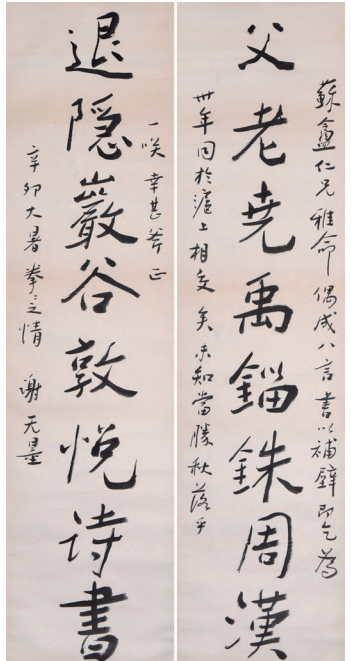 蘇盦仁兄雅命偶成八言書以補壁即乞為
父老堯禹錙銖周漢
卅年同於滬上相交矣未知當勝秋落乎
一咲幸甚斧正
退隱巖谷敦悅詩書
辛卯大暑拳之情 謝无量